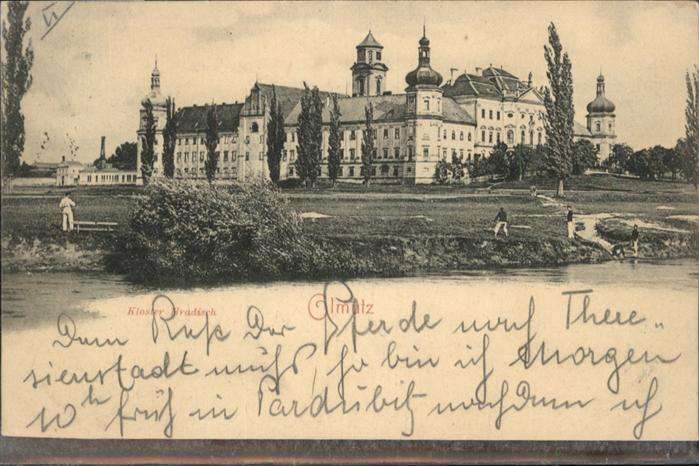 Kloster Hradisch
Olmütz
Dem Rufs Der Pferde nach There„
sienstadt muhs, so bin ich Morgen
10h früh in Pardubitz nachdem ich